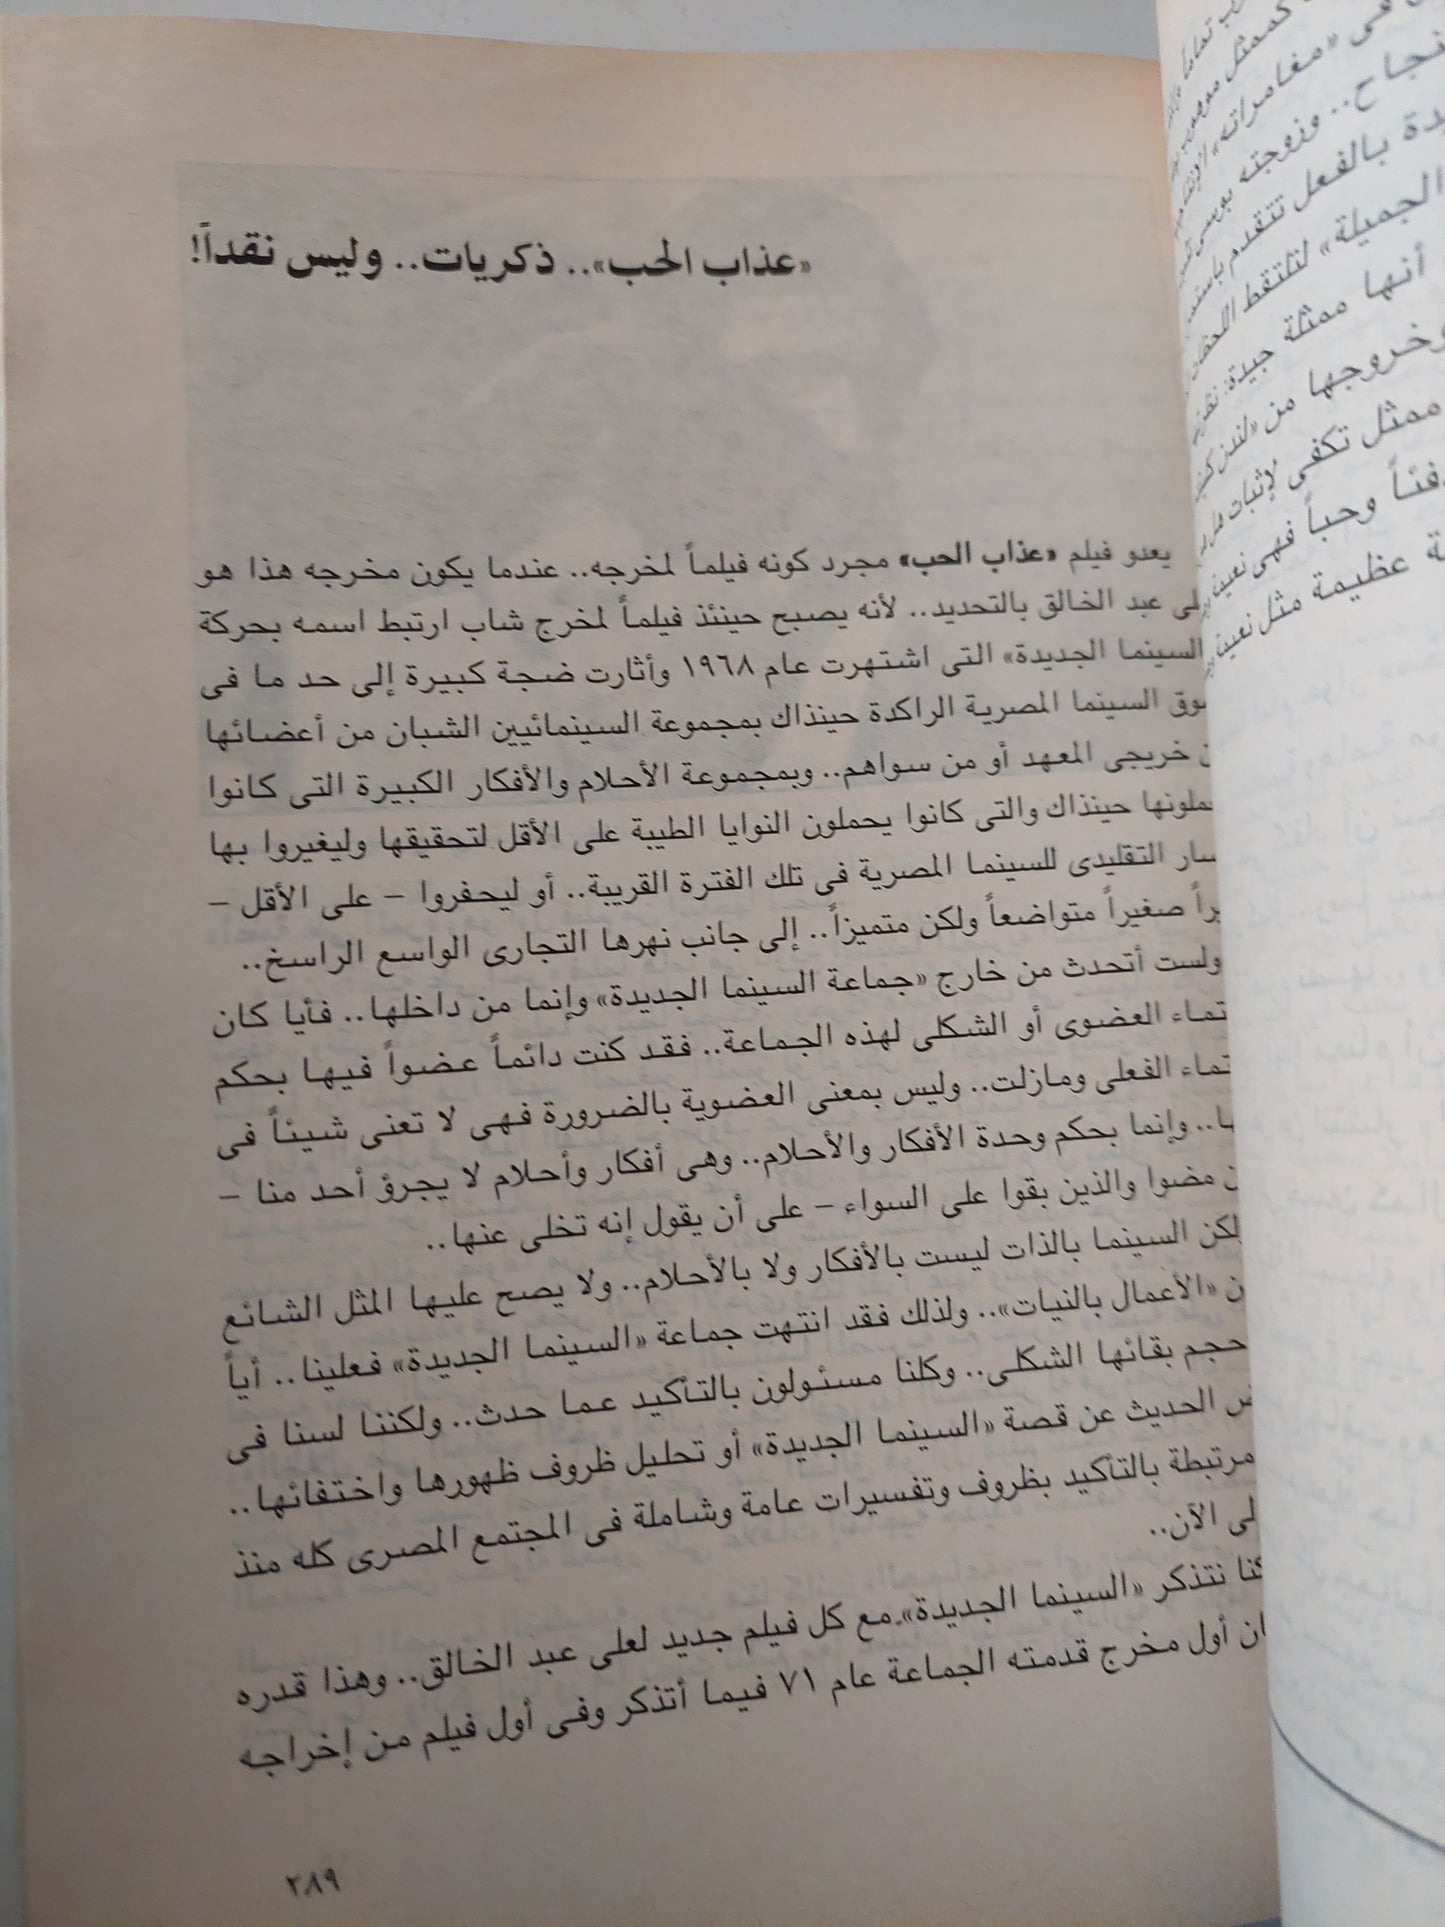 «عذاب الحب».. ذكريات.. وليس نقداً!
يعدو فيلم «عذاب الحب» مجرد كونه فيلماً لمخرجه.. عندما يكون مخرجه هذا هو
عبد الخالق بالتحديد.. لأنه يصبح حينئذ فيلماً لمخرج شاب ارتبط اسمه بحركة
السينما الجديدة» التى اشتهرت عام ١٩٦٨ وأثارت ضجة كبيرة إلى حد ما فى
السينما المصرية الراكدة حينذاك بمجموعة السينمائيين الشبان من أعضائها
خريجى المعهد أو من سواهم.. وبمجموعة الأحلام والأفكار الكبيرة التى كانوا
حينذاك والتى كانوا يحملون النوايا الطيبة على الأقل لتحقيقها وليغيروا بها
التقليدى للسينما المصرية فى تلك الفترة القريبة.. أو ليحفروا – على الأقل –
صغيراً متواضعاً ولكن متميزاً.. إلى جانب نهرها التجارى الواسع الراسخ..
ولست أتحدث من خارج «جماعة السينما الجديدة» وإنما من داخلها.. فأيا كان
العضوى أو الشكلى لهذه الجماعة.. فقد كنت دائماً عضواً فيها بحكم
الفعلى ومازلت.. وليس بمعنى العضوية بالضرورة فهى لا تعنى شيئاً فى
وإنما بحكم وحدة الأفكار والأحلام.. وهى أفكار وأحلام لا يجرؤ أحد منا –
مضوا والذين بقوا على السواء – على أن يقول إنه تخلى عنها..
السينما بالذات ليست بالأفكار ولا بالأحلام.. ولا يصح عليها المثل الشائع
«الأعمال بالنيات».. ولذلك فقد انتهت جماعة «السينما الجديدة» فعلينا.. أياً
حجم بقائها الشكلى.. وكلنا مسئولون بالتأكيد عما حدث.. ولكننا لسنا فى
الحديث عن قصة «السينما الجديدة» أو تحليل ظروف ظهورها واختفائها..
مرتبطة بالتأكيد بظروف وتفسيرات عامة وشاملة فى المجتمع المصرى كله منذ
الآن..
نتذكر «السينما الجديدة» مع كل فيلم جديد لعلى عبد الخالق.. وهذا قدره
أول مخرج قدمته الجماعة عام ٧١ فيما أتذكر وفى أول فيلم من إخراجه
٣٨٩
نجاح.. وزوجته
بالفعل تتقدم
الجميلة» لتلتقط اللحظات
أنها ممثلة جيدة.
وخروجها من
ممثل تكفى لإثبات
وحباً فهى
عظيمة مثل